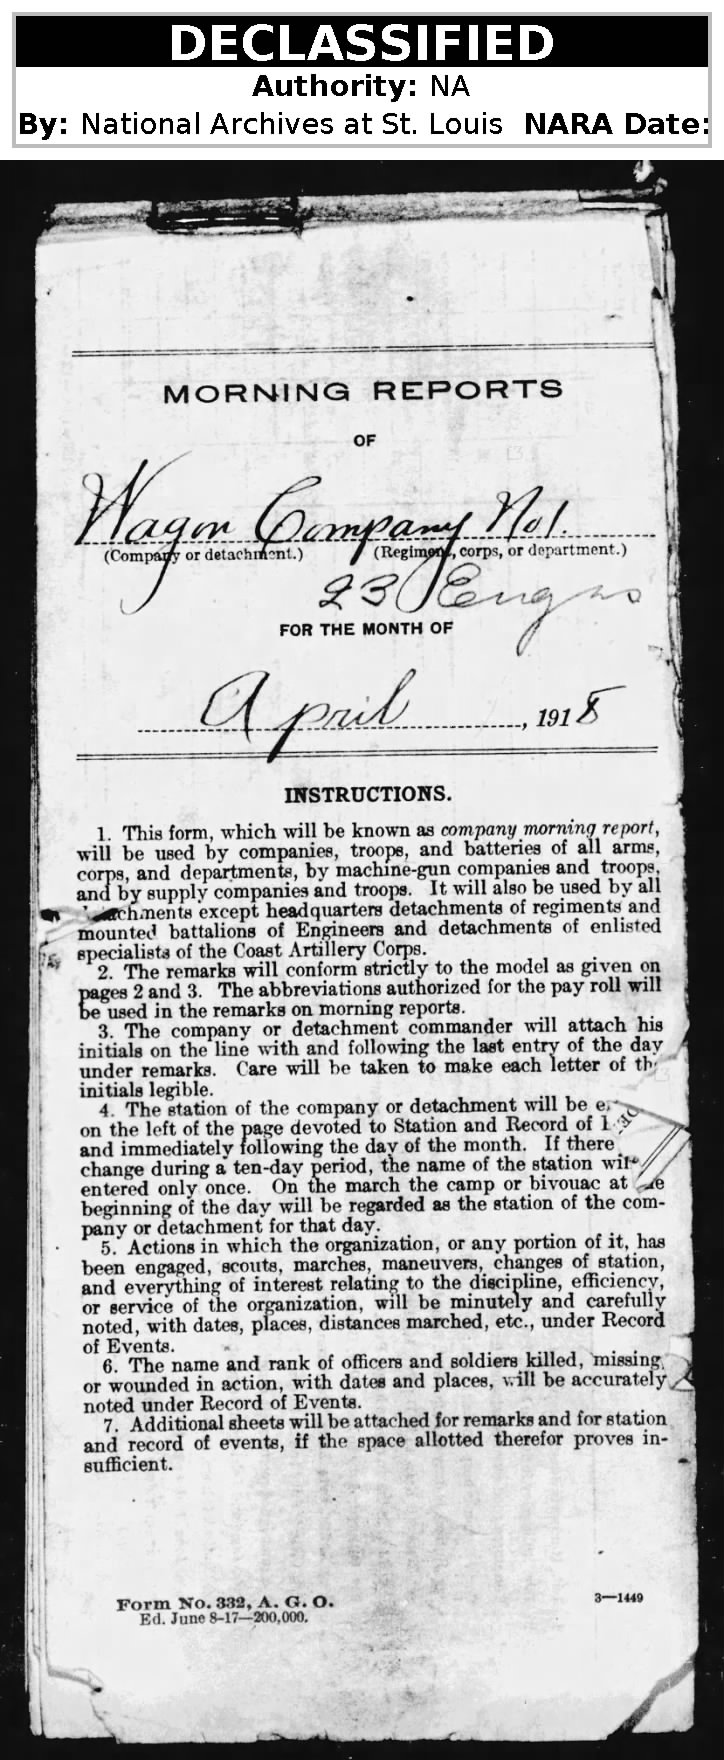 DECLASSIFIED
Authority: NA
By: National Archives at St. Louis NARA Date:
MORNING REPORTS
OF
Wagon Company No 1.
(Company or detachment.) (Regiment, corps, or department.)
23 Engrs
FOR THE MONTH OF
April, 1918
INSTRUCTIONS.
1. This form, which will be known as company morning report,
will be used by companies, troops, and batteries of all arms,
corps, and departments, by machine-gun companies and troops,
and by supply companies and troops. It will also be used by all
chments except headquarters detachments of regiments and
mounted battalions of Engineers and detachments of enlisted
specialists of the Coast Artillery Corps.
2. The remarks will conform strictly to the model as given on
pages 2 and 3. The abbreviations authorized for the pay roll will
be used in the remarks on morning reports.
3. The company or detachment commander will attach his
initials on the line with and following the last entry of the day
under remarks. Care will be taken to make each letter of th
initials legible.
4. The station of the company or detachment will be e
on the left of the page devoted to Station and Record of
and immediately following the day of the month. If there
change during a ten-day period, the name of the station wil
entered only once. On the march the camp or bivouac at
beginning of the day will be regarded as the station of the com-
pany or detachment for that day.
5. Actions in which the organization, or any portion of it, has
been engaged, scouts, marches, maneuvers, changes of station,
and everything of interest relating to the discipline, efficiency,
or service of the organization, will be minutely and carefully
noted, with dates, places, distances marched, etc., under Record
of Events.
6. The name and rank of officers and soldiers killed, missing,
or wounded in action, with dates and places, will be accurately
noted under Record of Events.
7. Additional sheets will be attached for remarks and for station
and record of events, if the space allotted therefor proves in-
sufficient.
Form No. 332, A. G. O.
Ed. June 8-17—200,000.
3—1449